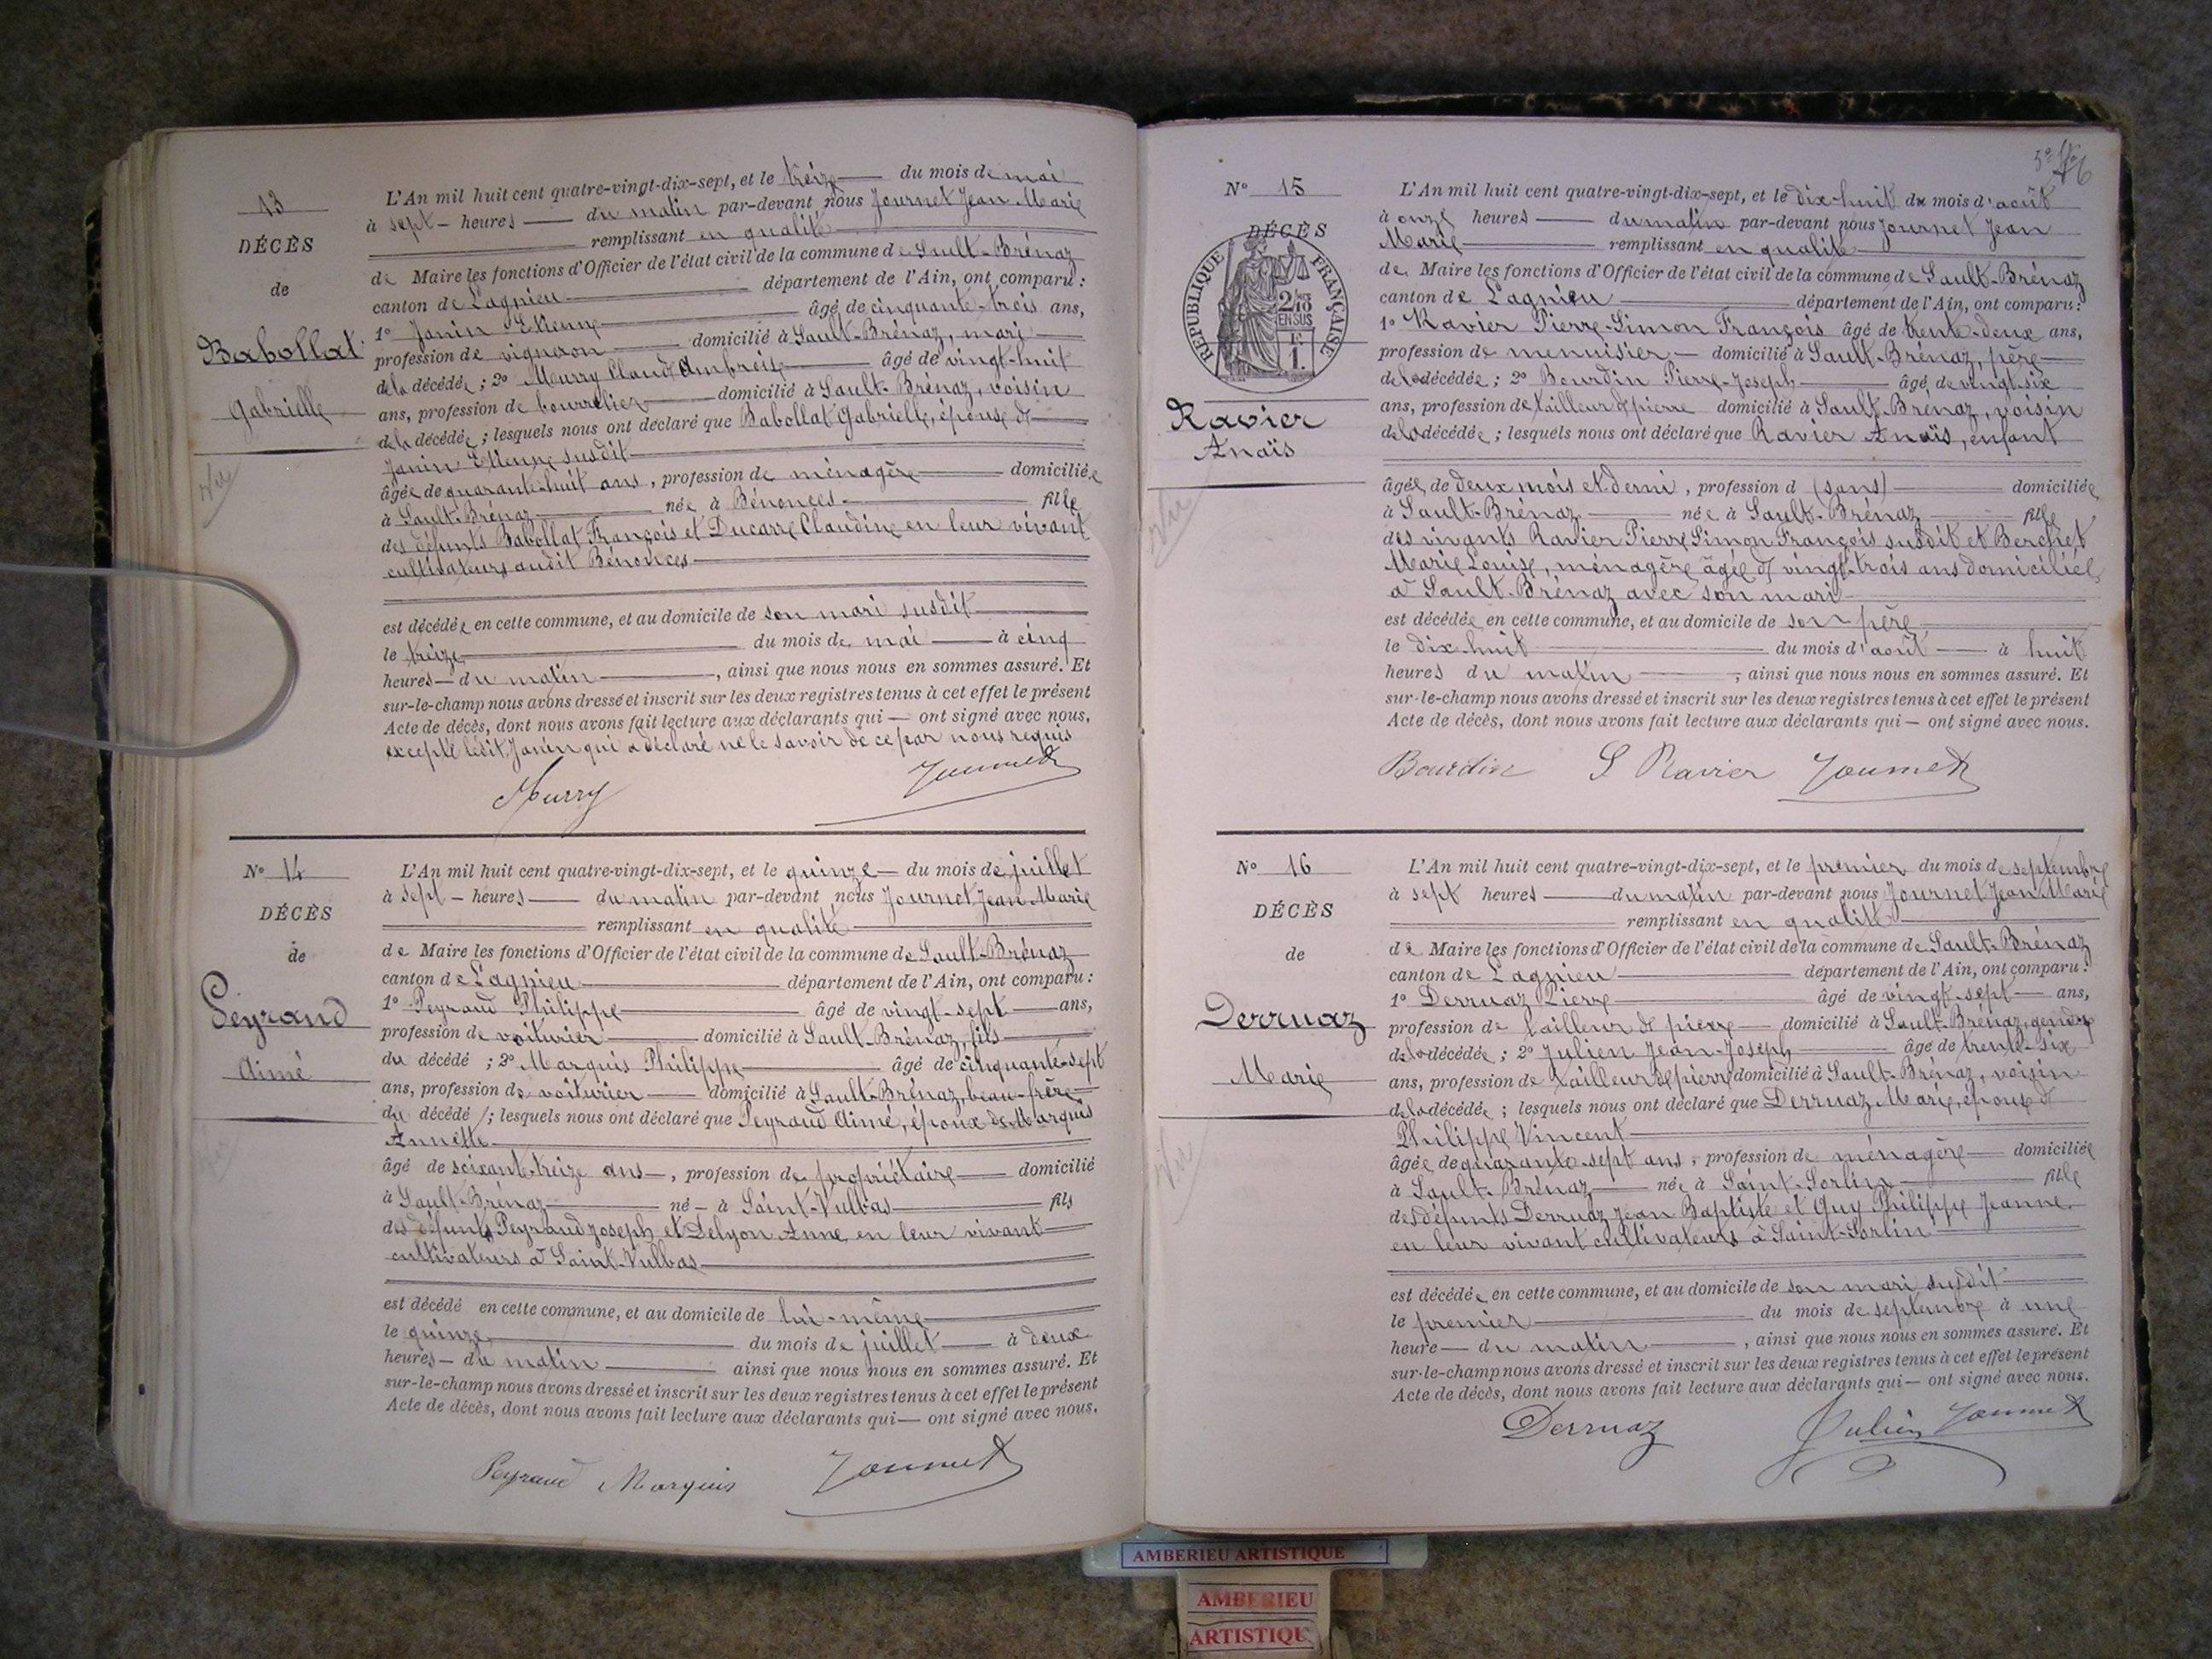 13
DÉCÈS
de
Babollat
Gabrielle
Vu
L'An mil huit cent quatre-vingt-dix-sept, et le treize du mois de mai
à sept heures du matin par-devant nous Journet Jean Marie
remplissant en qualité
de Maire les fonctions d'Officier de l'état civil de la commune de Sault-Brénaz
canton de Lagnieu département de l'Ain, ont comparu :
1º Janin Etienne âgé de cinquante-trois ans,
profession de vigneron domicilié à Sault-Brénaz, mari
de la décédée ; 2º Meurry Claude Ambroise âgé de vingt-huit
ans, profession de bourrelier domicilié à Sault-Brénaz, voisin
de la décédée ; lesquels nous ont déclaré que Babollat Gabrielle, épouse de
Janin Etienne susdit
âgée de quarante-huit ans, profession de ménagère domiciliée
à Sault-Brénaz née à Bénonces fille
des défunts Babollat François et Ducarre Claudine en leur vivant
cultivateurs audit Bénonces
est décédée en cette commune, et au domicile de son mari susdit
le treize du mois de mai à cinq
heures du matin, ainsi que nous nous en sommes assuré. Et
sur-le-champ nous avons dressé et inscrit sur les deux registres tenus à cet effet le présent
Acte de décès, dont nous avons fait lecture aux déclarants qui — ont signé avec nous,
excepté ledit Janin qui a déclaré ne le savoir de ce par nous requis
Murry Journet
Nº 14
DÉCÈS
de
Peyraud
Aimé
L'An mil huit cent quatre-vingt-dix-sept, et le quinze du mois de juillet
à sept heures du matin par-devant nous Journet Jean Marie
remplissant en qualité
de Maire les fonctions d'Officier de l'état civil de la commune de Sault-Brénaz
canton de Lagnieu département de l'Ain, ont comparu :
1º Peyraud Philippe âgé de vingt-sept ans,
profession de voiturier domicilié à Sault-Brénaz, fils
du décédé ; 2º Marquis Philippe âgé de cinquante-sept
ans, profession de voiturier domicilié à Sault-Brénaz, beau-frère
du décédé ; lesquels nous ont déclaré que Peyraud Aimé, époux de Marquis
Annette
âgé de soixante-treize ans, profession de propriétaire domicilié
à Sault-Brénaz né à Saint-Vulbas fils
des défunts Peyraud Joseph et Delyon Anne en leur vivant
cultivateurs à Saint-Vulbas
est décédé en cette commune, et au domicile de lui-même
le quinze du mois de juillet à deux
heures du matin ainsi que nous nous en sommes assuré. Et
sur-le-champ nous avons dressé et inscrit sur les deux registres tenus à cet effet le présent
Acte de décès, dont nous avons fait lecture aux déclarants qui — ont signé avec nous.
Peyraud Marquis Journet
Nº 15
DÉCÈS
RÉPUBLIQUE FRANÇAISE
2/10
EN SUS
1
Ravier
Anaïs
Vu
L'An mil huit cent quatre-vingt-dix-sept, et le dix-huit du mois d'août
à onze heures du matin par-devant nous Journet Jean
Marie remplissant en qualité
de Maire les fonctions d'Officier de l'état civil de la commune de Sault-Brénaz
canton de Lagnieu département de l'Ain, ont comparu :
1º Ravier Pierre-Simon François âgé de trente-deux ans,
profession de menuisier domicilié à Sault-Brénaz, père
de la décédée ; 2º Bourdin Pierre-Joseph âgé de vingt-six
ans, profession de tailleur de pierre domicilié à Sault-Brénaz, voisin
de la décédée ; lesquels nous ont déclaré que Ravier Anaïs, enfant
âgée de deux mois et demi, profession d (sans) domiciliée
à Sault-Brénaz née à Sault-Brénaz fille
des vivants Ravier Pierre Simon François susdit et Berchet
Marie Louise, ménagère âgée de vingt-trois ans domiciliée
à Sault-Brénaz avec son mari
est décédée en cette commune, et au domicile de son père
le dix-huit du mois d'août à huit
heures du matin, ainsi que nous nous en sommes assuré. Et
sur-le-champ nous avons dressé et inscrit sur les deux registres tenus à cet effet le présent
Acte de décès, dont nous avons fait lecture aux déclarants qui — ont signé avec nous.
Bourdin S Ravier Journet
Nº 16
DÉCÈS
de
Derruaz
Marie
Vu
L'An mil huit cent quatre-vingt-dix-sept, et le premier du mois de septembre
à sept heures du matin par-devant nous Journet Jean Marie
remplissant en qualité
de Maire les fonctions d'Officier de l'état civil de la commune de Sault-Brénaz
canton de Lagnieu département de l'Ain, ont comparu :
1º Derruaz Pierre âgé de vingt-sept ans,
profession de tailleur de pierre domicilié à Sault-Brénaz, gendre
de la décédée ; 2º Julien Jean-Joseph âgé de trente-six
ans, profession de tailleur de pierre domicilié à Sault-Brénaz, voisin
de la décédée ; lesquels nous ont déclaré que Derruaz Marie, épouse de
Philippe Vincent
âgée de quarante-sept ans, profession de ménagère domiciliée
à Sault-Brénaz née à Saint-Sorlin fille
des défunts Derruaz Jean Baptiste et Guy Philippe Jeanne
en leur vivant cultivateurs à Saint-Sorlin
est décédée en cette commune, et au domicile de son mari susdit
le premier du mois de septembre à une
heure du matin, ainsi que nous nous en sommes assuré. Et
sur-le-champ nous avons dressé et inscrit sur les deux registres tenus à cet effet le présent
Acte de décès, dont nous avons fait lecture aux déclarants qui — ont signé avec nous.
Derruaz Julien Journet
AMBERIEU ARTISTIQUE
AMBERIEU
ARTISTIQU